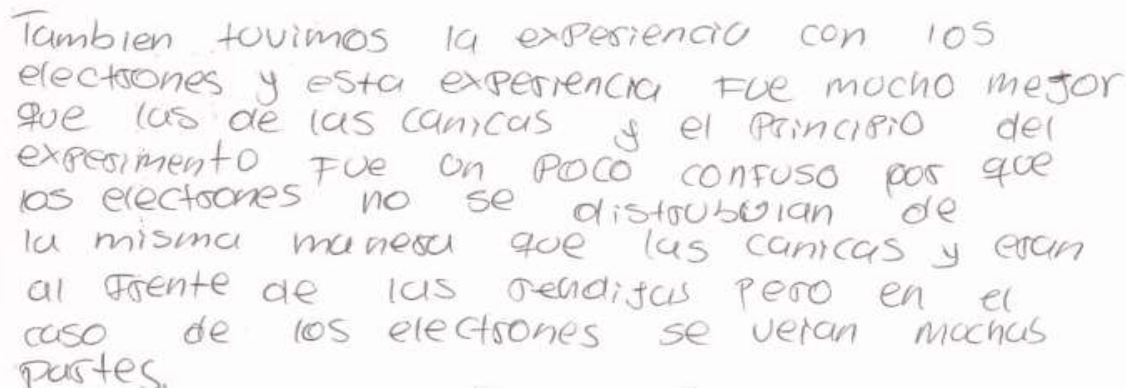 Tambien tuvimos la experiencia con los
electrones y esta experiencia Fue mucho mejor
que las de las canicas y el Principio del
experimento Fue un Poco confuso por que
los electrones no se distrubuian de
la misma manera que las canicas y eran
al Frente de las rendijas Pero en el
caso de los electrones se veian muchas
partes.